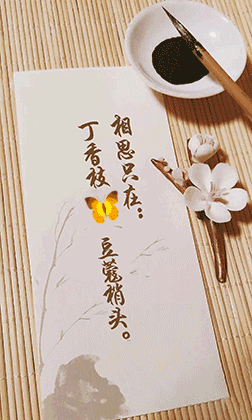 相思只在：
丁香枝
豆蔻梢头。